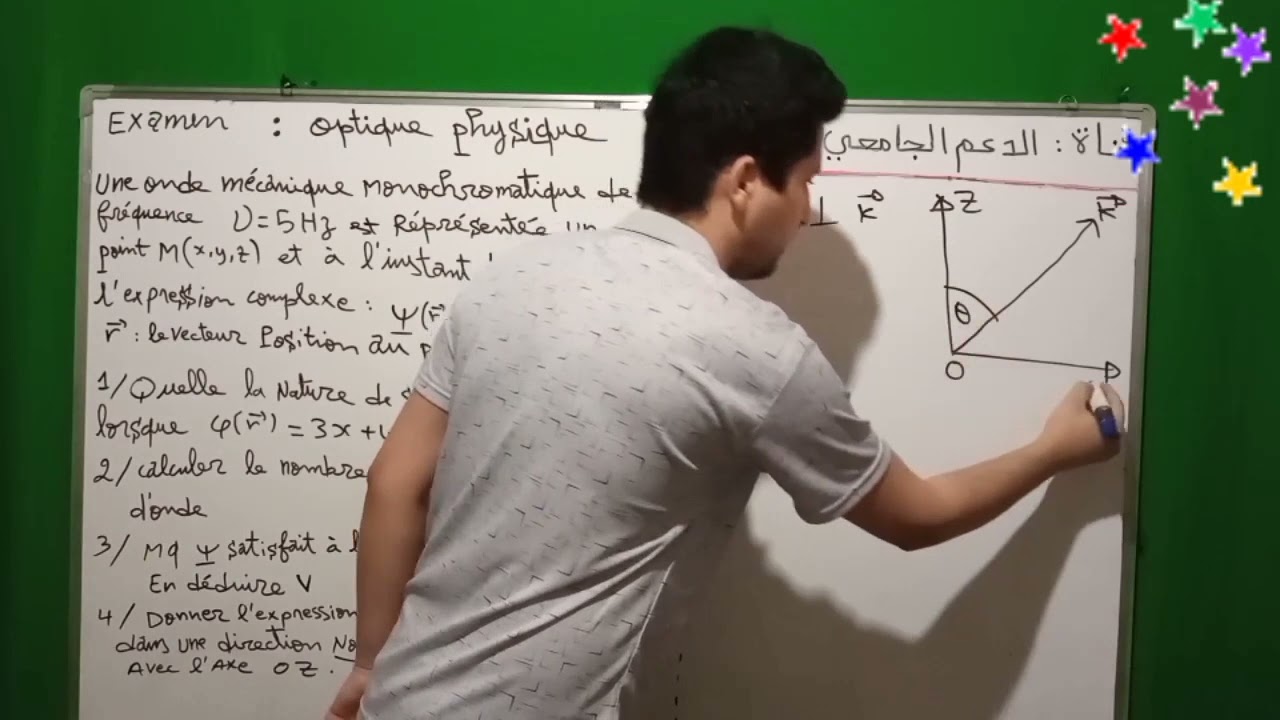 Examen : optique physique
ناة : الدعم الجامعي
Une onde mécanique Monochromatique de
fréquence ν = 5 Hz est Réprésentée un
point M(x,y,z) et à l'instant
l'expression complexe : Ψ(r⃗
r⃗ : le vecteur Position au
1/ Quelle la Nature de
lorsque φ(r⃗) = 3x +
2/ calculer le nombre
d'onde
3/ Mq Ψ satisfait à l
En déduire V
4/ Donner l'expression
dans une direction
Avec l'Axe OZ.
⊥ k⃗
Z
k⃗
θ
O